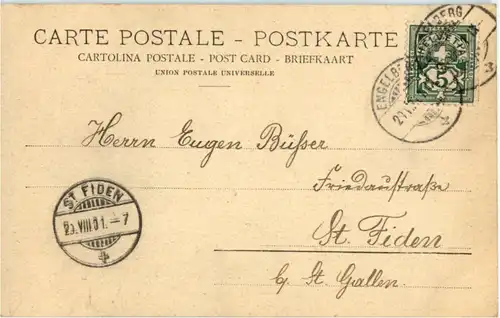 CARTE POSTALE - POSTKARTE
CARTOLINA POSTALE - POST CARD - BRIEFKAART
UNION POSTALE UNIVERSELLE
5
Herrn Eugen Büßer
Friedaustraße
St. Fiden
b. St. Gallen
ST. FIDEN
VIII 01. - 7